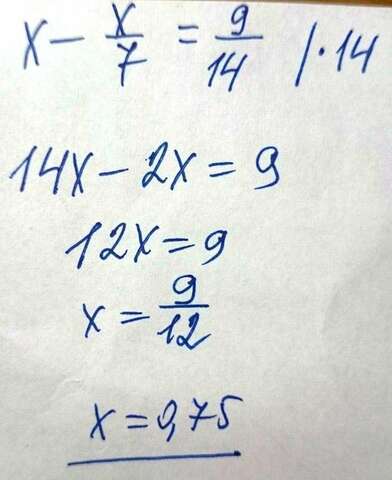 x - x/7 = 9/14 /·14
14x - 2x = 9
12x = 9
x = 9/12
x = 0,75